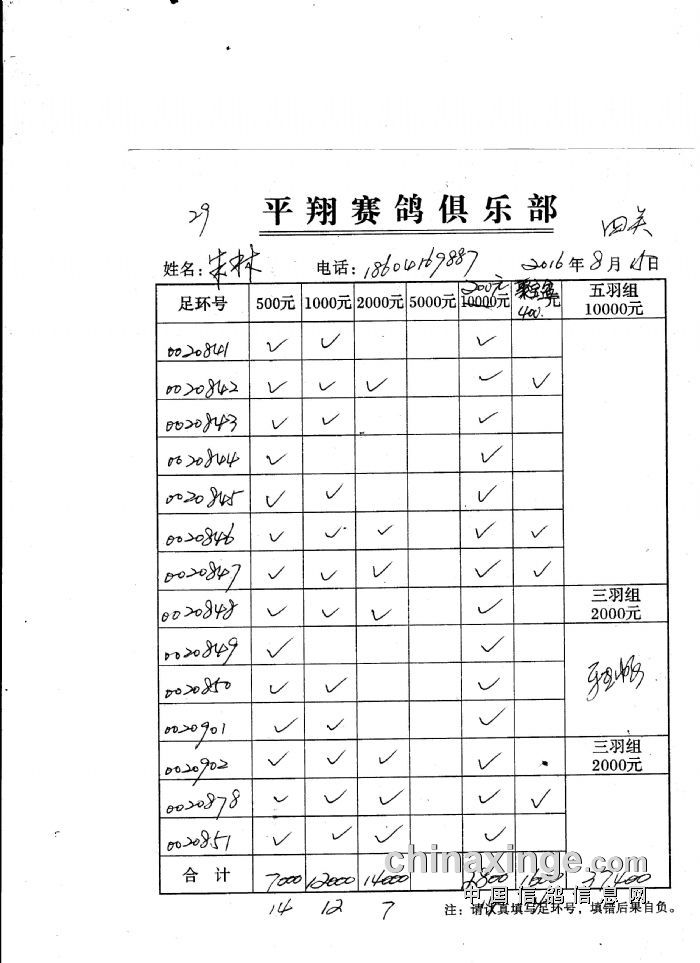 29
平翔赛鸽俱乐部
四关
姓名: 朱林 电话: 18604169887 2016年8月15日
足环号 500元 1000元 2000元 5000元 200元 10000元 聚宝盆 400. 元 五羽组 10000元
0020841 ✓ ✓ ✓
0020842 ✓ ✓ ✓ ✓ ✓
0020843 ✓ ✓ ✓
0020844 ✓ ✓
0020845 ✓ ✓ ✓
0020846 ✓ ✓ ✓ ✓ ✓
0020847 ✓ ✓ ✓ ✓ ✓
0020848 ✓ ✓ ✓ ✓ 三羽组 2000元
0020849 ✓ ✓
0020850 ✓ ✓ ✓
0020901 ✓ ✓ ✓
0020902 ✓ ✓ ✓ ✓ 三羽组 2000元
0020878 ✓ ✓ ✓ ✓ ✓
0020851 ✓ ✓ ✓ ✓
合计 7000 12000 14000 2800 1600 37400
14 12 7
chinaxinge.com
中国信鸽信息网
注: 请认真填写足环号, 填错后果自负。